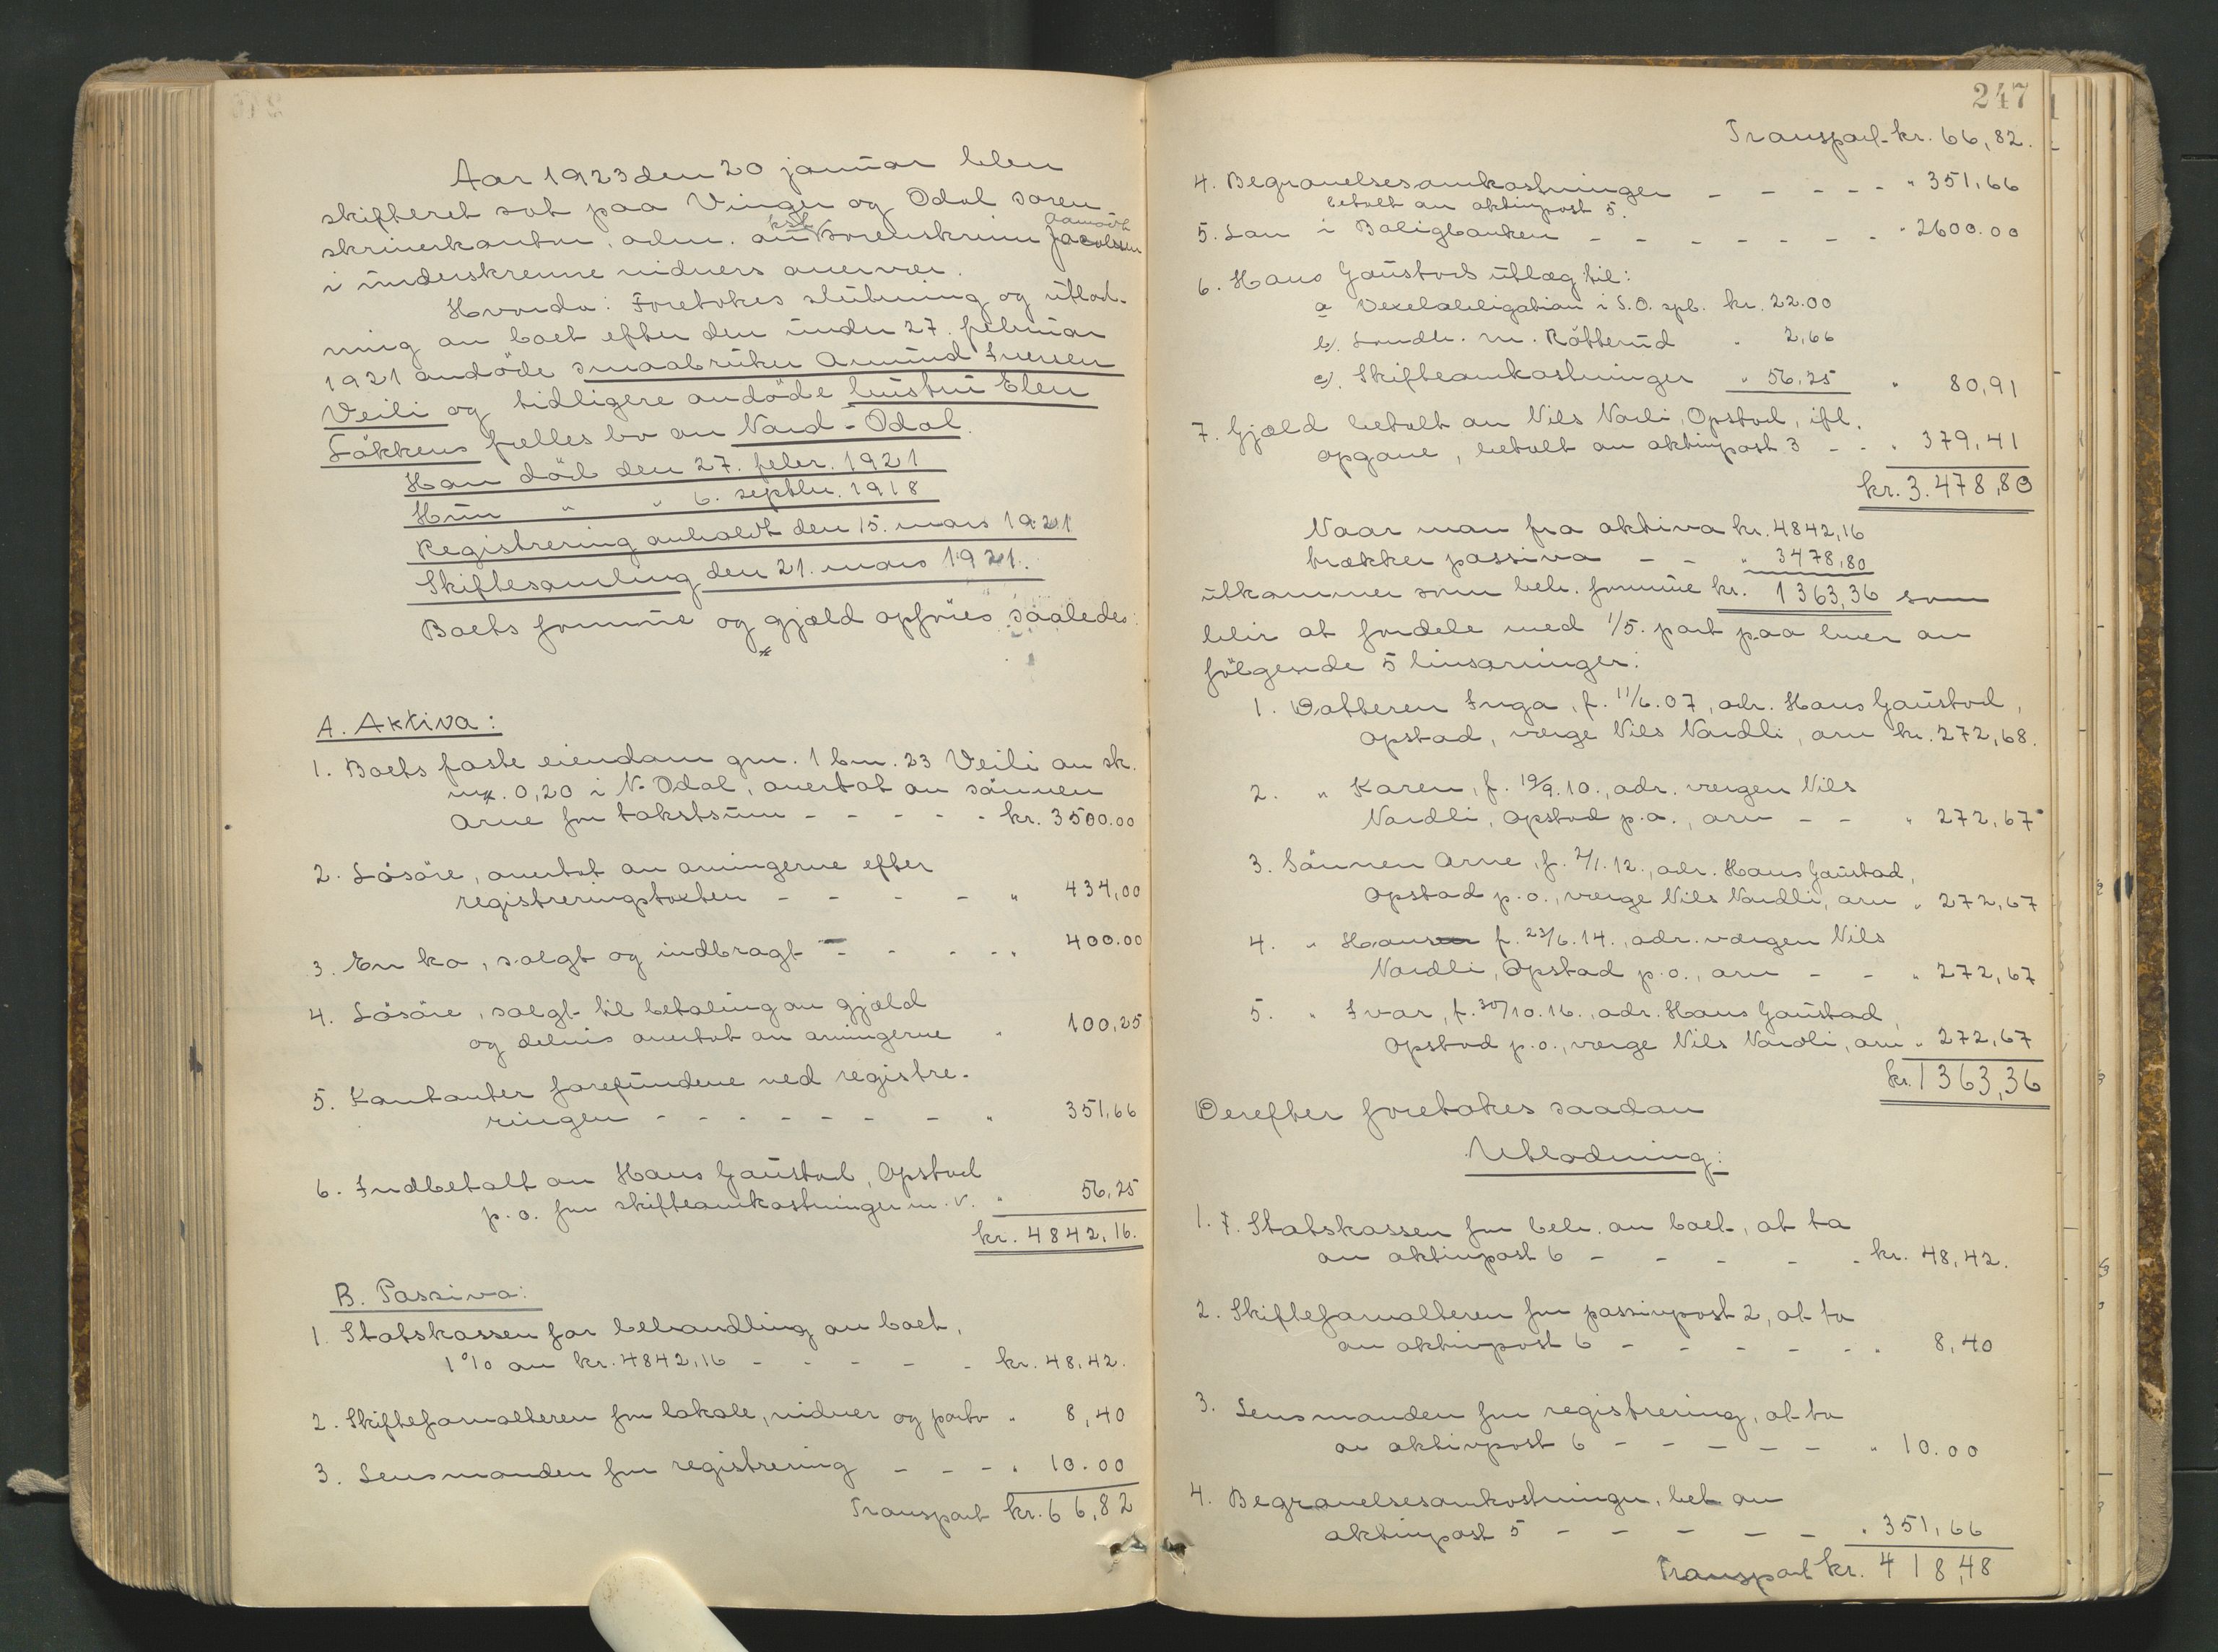 Aar 1923 den 20 januar blev
skifteret sat paa Vinger og Odal soren
skriverkontor, adm. av kst. sorenskriver Jacobssen
i underskrevne vidners overvær.
Hvorda: Foretokes slutning og utlod-
ning av boet efter den under 27. februar
1921 avdöde smaabruker Amund Iversen
Veili og tidligere avdöde hustru Elen
Løkkens fælles bo av Nord-Odal.
Han död den 27. febr. 1921
Hun " " 6. septbr. 1918
Registrering avholdt den 15. mars 1921
Skiftesamling den 21. mars 1921.
Boets formue og gjæld opföres saaledes:
A. Aktiva:
1. Boets faste eiendom gnr. 1 bnr. 23 Veili av sk.
mk. 0,20 i N. Odal, overtat av sönnen
Arne for takstsum - - - - - kr. 3500.00
2. Lösöre, overtat av arvingerne efter
registreringstaksten - - - - " 434,00
3. En ko, solgt og indbragt - - - - " 400.00
4. Lösöre, solgt til betaling av gjæld
og delvis overtat av arvingerne " 100,25
5. Kontanter forefundene ved registre-
ringen - - - - - - - " 351,66
6. Indbetalt av Hans Gaustad, Opstad
p.o. for skifteomkostninger m.v. " 56,25
kr. 4842,16.
B. Passiva:
1. Statskassen for behandling av boet,
1% av kr. 4842,16 - - - - - kr. 48,42.
2. Skifteforvalteren for lokale, vidner og porto " 8,40
3. Lensmanden for registrering - - - " 10.00
Transport kr. 66,82
247
Transport kr. 66,82.
4. Begravelsesomkostninger - - - - - " 351,66
betalt av aktivpost 5.
5. Laan i Boligbanken - - - - - - - " 2600.00
6. Hans Gaustads utlæg til:
a Vexelobligation i S.O. spb. kr. 22.00
b). Landh. M. Råtterud " 2,66
c). Skifteomkostninger " 56,25 " 80,91
7. Gjæld betalt av Nils Nordli, Opstad, ifl.
opgave, betalt av aktivpost 3 - - " 379,41
kr. 3.478,80
Naar man fra aktiva kr. 4842,16
trækker passiva - - " 3478,80
utkommer som beh. formue kr. 1363,36 som
blir at fordele med 1/5. part paa hver av
fölgende 5 livsarvinger:
1. Datteren Inga, f. 11/6.07, adr. Hans Gaustad,
Opstad, verge Nils Nordli, arv kr. 272,68.
2. " Karen, f. 19/9.10., adr. vergen Nils
Nordli, Opstad p.o., arv - - " 272,67
3. Sönnen Arne, f. 2/1.12., adr. Hans Gaustad,
Opstad p.o., verge Nils Nordli, arv " 272,67
4. " Hans f. 23/6.14., adr. vergen Nils
Nordli, Opstad p.o., arv - - " 272,67
5. " Ivar, f. 30/10.16., adr. Hans Gaustad,
Opstad p.o., verge Nils Nordli, arv " 272,67
kr. 1363,36
Derefter foretokes saadan
Utlodning:
1. Statskassen for beh. av boet, at ta
av aktivpost 6 - - - - - kr. 48,42.
2. Skifteforvalteren for passivpost 2, at ta
av aktivpost 6 - - - - - - " 8,40
3. Lensmanden for registrering, at ta
av aktivpost 6 - - - - - " 10.00
4. Begravelsesomkostninger, bet av
aktivpost 5 - - - - - " 351,66
Transport kr. 418,48